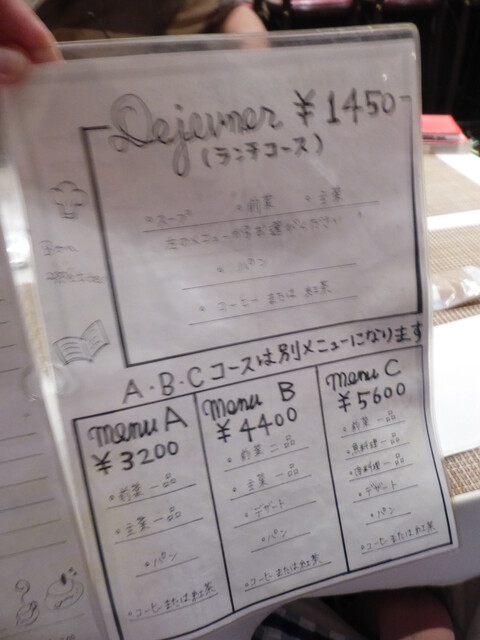 Dejeuner ¥1450
(ランチコース)
・スープ ・前菜 ・主菜
左のメニューからお選びください
・パン
・コーヒーまたは紅茶
A・B・Cコースは別メニューになります
menu A
¥3200
・前菜一品
・主菜一品
・パン
・コーヒーまたは紅茶
menu B
¥4400
・前菜二品
・主菜一品
・デザート
・パン
・コーヒーまたは紅茶
menu C
¥5600
・前菜一品
・魚料理一品
・肉料理一品
・デザート
・パン
・コーヒーまたは紅茶